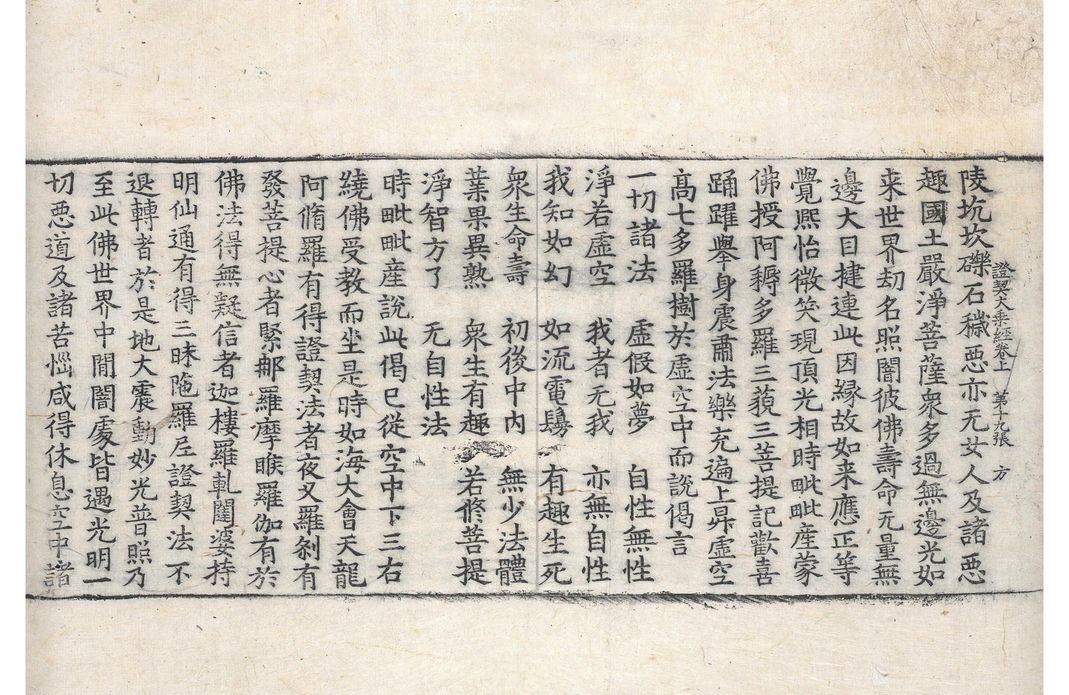 陵坑坎礫石穢惡亦无女人及諸惡
證契大乘經卷上　第十九張　方
趣國土嚴淨菩薩衆多過無邊光如
来世界刼名照闇彼佛壽命无量無
邊大目揵連此因縁故如来應正等
覺熙怡微笑現頂光相時毗毗産蒙
佛授阿耨多羅三藐三菩提記歡喜
踊躍舉身震肅法樂充遍上昇虛空
髙七多羅樹於虛空中而說偈言
一切諸法　虛假如夢　自性無性
淨若虛空　我者无我　亦無自性
我知如幻　如流電鬘　有趣生死
衆生命壽　初後中内　無少法體
業果異熟　衆生有趣　若修菩提
淨智方了　无自性法
時毗毗産說此偈已從空中下三右
繞佛受教而坐是時如海大會天龍
阿脩羅有得證契法者夜叉羅剎有
發菩提心者緊那羅摩睺羅伽有於
佛法得無疑信者迦樓羅軋闥婆持
明仙通有得三昧陁羅尼證契法不
退轉者於是地大震動妙光普照乃
至此佛世界中間闇處皆遇光明一
切惡道及諸苦惱咸得休息空中諸